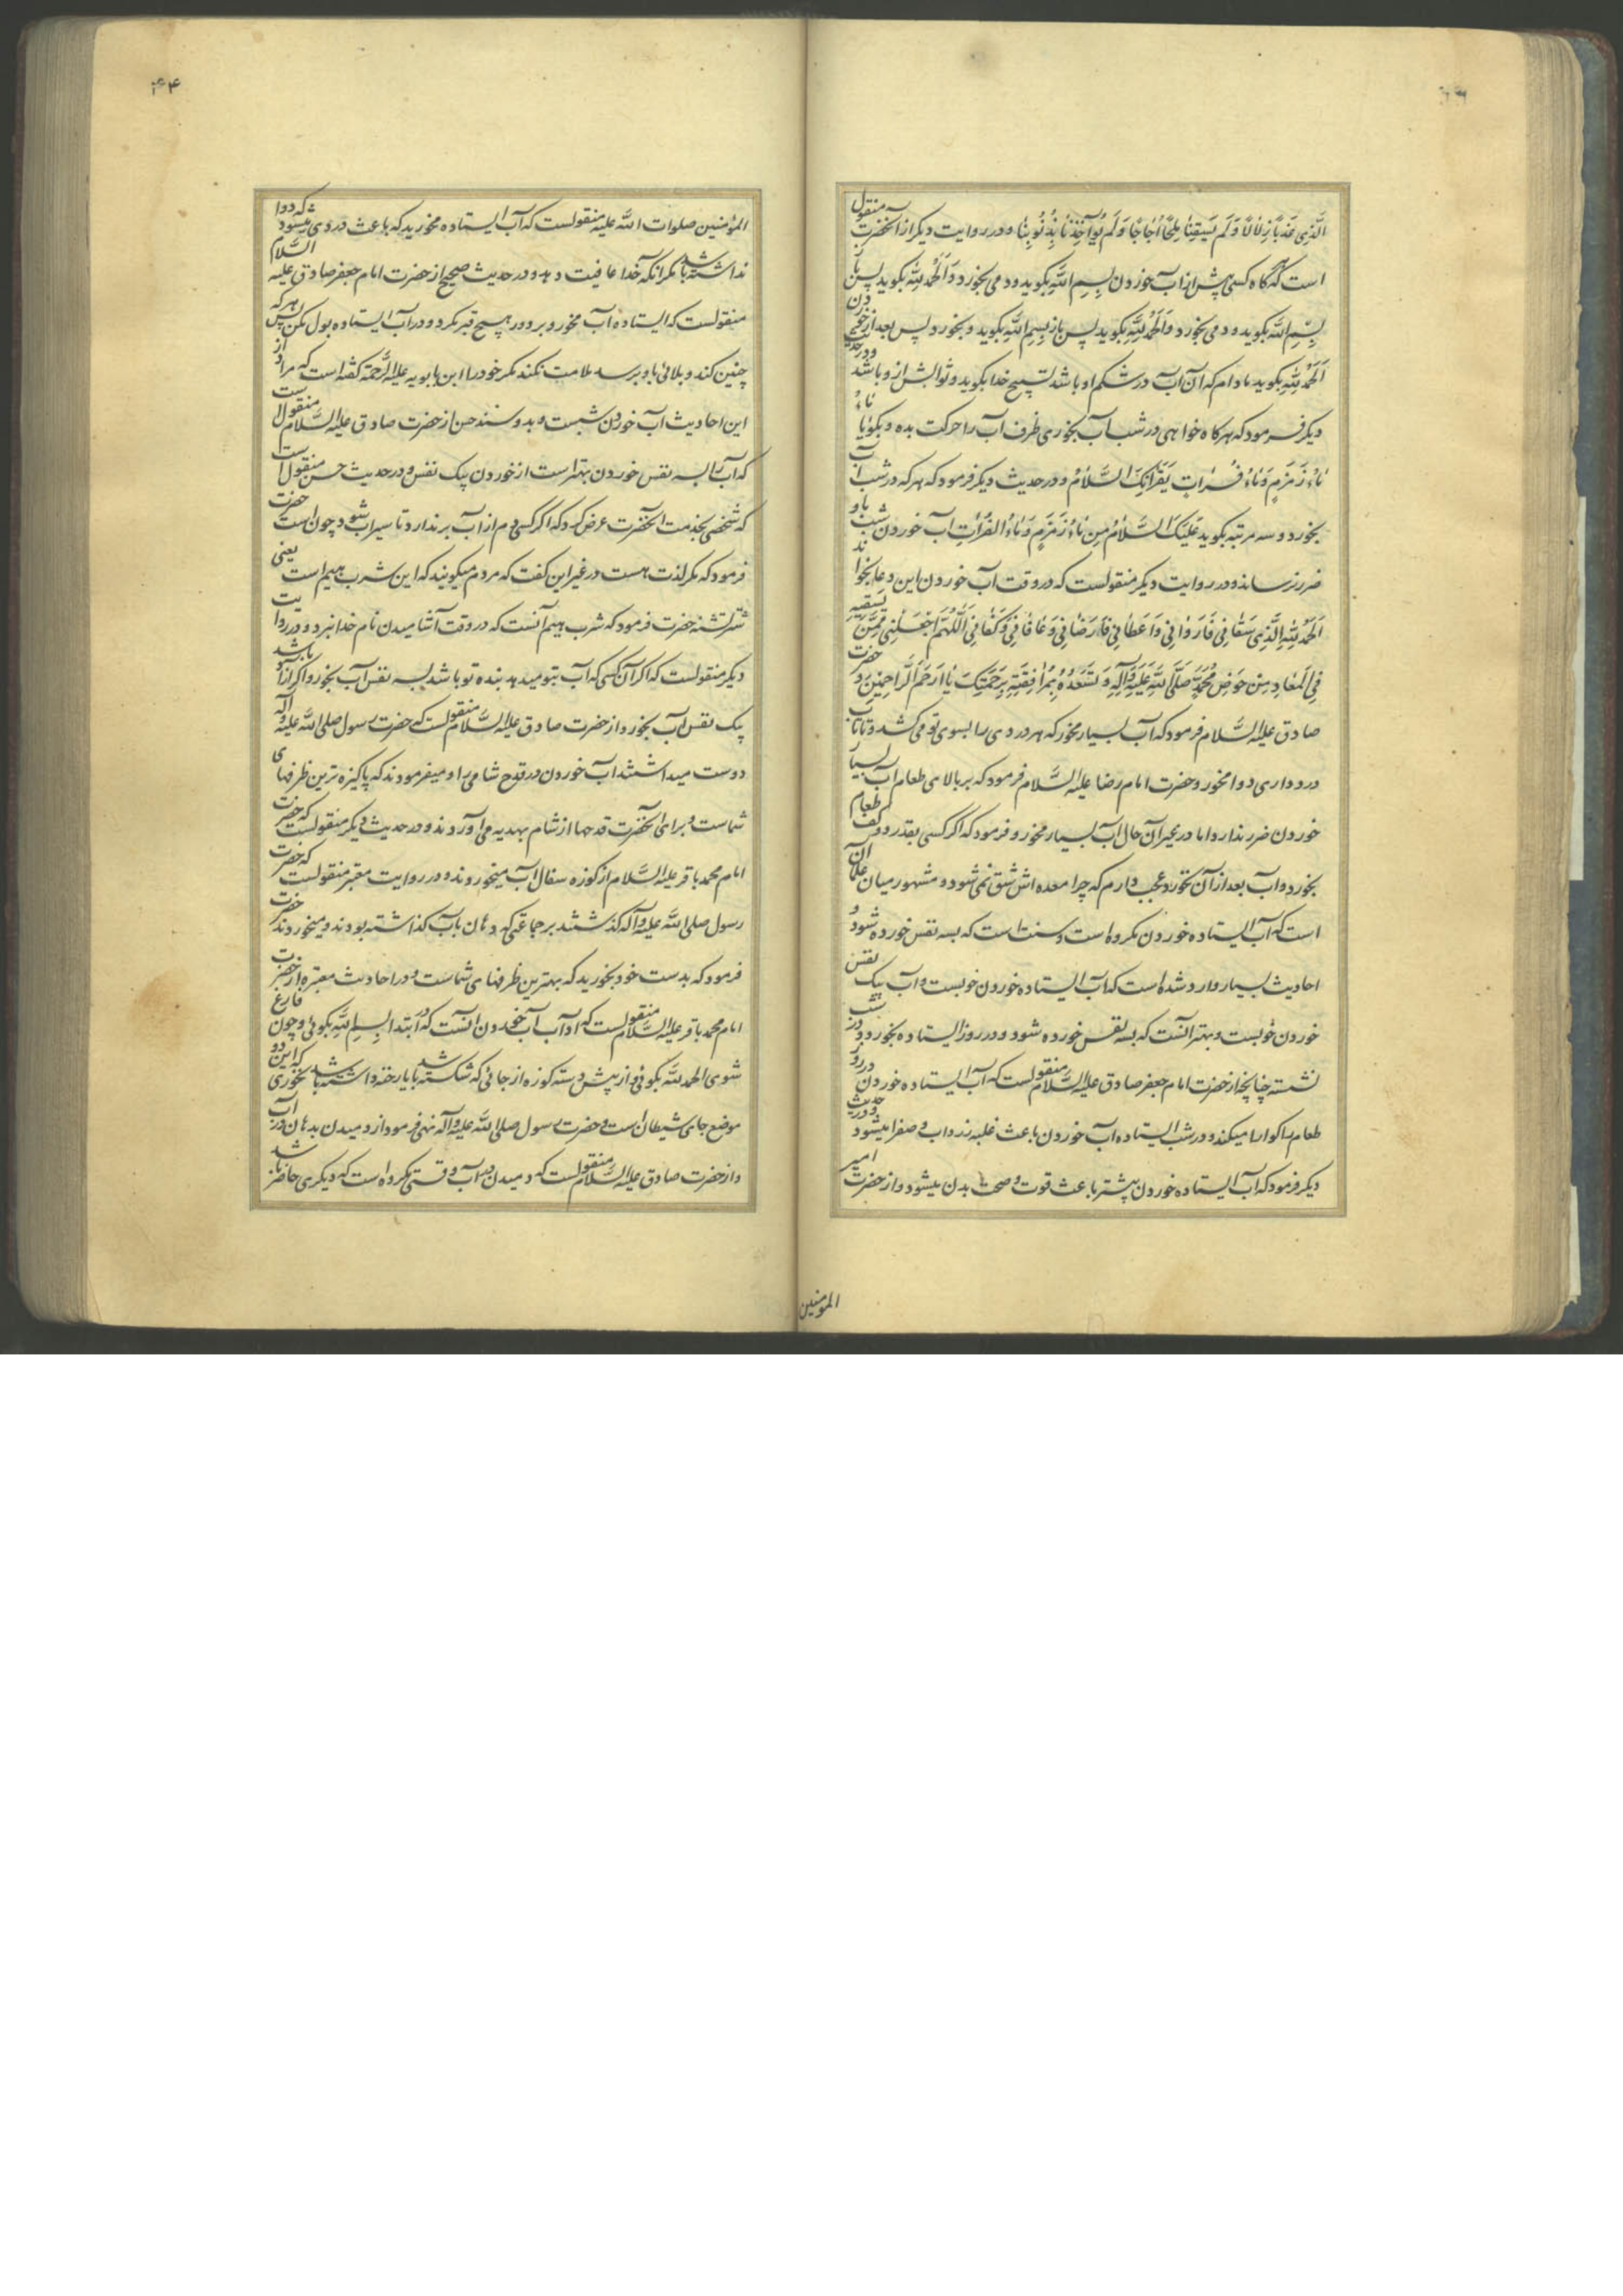 الَّذی عَذْبًا زُلالًا وَلَم یَسقِنا مِلحًا اُجاجًا وَلَم یُؤآخِذنا بِذُنُوبِنا و در روایت دیکر از آنحضرت منقول
است که هرکاه کسی پیش از آب خوردن بِسمِ اللهِ بکوید و دمی بخورد و اَلحَمدُ لِلّٰهِ بکوید پس باز
بِسمِ اللهِ بکوید و دمی بخورد و اَلحَمدُ لِلّٰهِ بکوید پس باز بِسمِ اللهِ بکوید و بخورد پس بعد از خوردن
اَلحَمدُ لِلّٰهِ بکوید مادام که آن آب در شکم او باشد تسبیح خدا بکوید و ثوابش از او باشد و در حدیث
دیکر فرمود که هرکاه خواهی در شب آب بخوری ظرف آب را حرکت بده و بکو یا ماءُ
ماءُ زَمزَمٍ وَماءُ فُراتٍ یَقرَأنِکَ السَّلامُ و در حدیث دیکر فرمود که هر که در شب آب
بخورد و سه مرتبه بکوید عَلَیکَ السَّلامُ مِن ماءِ زَمزَمٍ وَماءِ الفُراتِ آب خوردن شب باو
ضرر نرساند و در روایت دیکر منقولست که در وقت آب خوردن این دعا بخواند
اَلحَمدُ لِلّٰهِ الَّذی سَقانی فَاَروانی وَاَعطانی فَاَرضانی وَعافانی وَکَفانی اَللّٰهُمَّ اجعَلنی مِمَّن تَسقیهِ
فِی المَعادِ مِن حَوضِ مُحَمَّدٍ صَلَّی اللهُ عَلَیهِ وَآلِهِ وَتُسعِدُهُ بِمُرافَقَتِهِ بِرَحمَتِکَ یا اَرحَمَ الرّاحِمینَ و حضرت
صادق علیه السَّلام فرمود که آب بسیار مخور که هر دردی را بسوی تو می کشد و تا تاب
درد داری دوا مخور و حضرت امام رضا علیه السَّلام فرمود که بر بالای طعام آب بسیار
خوردن ضرر ندارد اما در غیر آن حال آب بسیار مخور و فرمود که اکر کسی بقدر دو کف طعام
بخورد و آب بعد از آن نخورد عجب دارم که چرا معده اش شق نمی شود و مشهور میان علما آن
است که آب ایستاده خوردن مکروه است و سنت است که بسه نفس خورده شود و
احادیث بسیار وارد شده است که آب ایستاده خوردن خوبست و آب بیک نفس
خوردن خوبست و بهتر آنست که بسه نفس خورده شود و در روز ایستاده بخورد و در شب
نشسته چنانچه از حضرت امام جعفر صادق علیه السَّلام منقولست که آب ایستاده خوردن در روز
طعام را کوارا میکند و در شب ایستاده آب خوردن باعث غلبه زرداب و صفرا میشود و در حدیث
دیکر فرمود که آب ایستاده خوردن بیشتر باعث قوت و صحت بدن میشود و از حضرت امیر
المومنین
۴۴
المؤمنین صلوات الله علیه منقولست که آب ایستاده مخورید که باعث دردی میشود که دوا
نداشته باشد مکر آنکه خدا عافیت دهد و در حدیث صحیح از حضرت امام جعفر صادق علیه السّلام
منقولست که ایستاده آب مخور و بر دور هیچ قبر مکرد و در آب ایستاده بول مکن پس هر که
چنین کند و بلائی باو برسد ملامت نکند مکر خود را ابن بابویه علیه الرَّحمة کفته است که مراد از
این احادیث آب خوردن شبست و بدو سند حسن از حضرت صادق علیه السَّلام منقولست
که آب را بسه نفس خوردن بهتر است از خوردن بیک نفس و در حدیث حسن منقولست
که شخصی بخدمت آنحضرت عرض کرد که اکر کسی دم از آب بر ندارد تا سیراب شود چونست حضرت
فرمود که مکر لذت هست در غیر این کفت که مردم میکویند که این شرب هیم است یعنی
شتر تشنه حضرت فرمود که شرب هیم آنست که در وقت آشامیدن نام خدا نبرد و در روایت
دیکر منقولست که اکر آن کسی که آب بتو میدهد بنده تو باشد بسه نفس آب بخور و اکر آزاد باشد
بیک نفس آب بخور و از حضرت صادق علیه السَّلام منقولست که حضرت رسول صلی الله علیه و آله
دوست میداشتند آب خوردن در قدح شامی را و میفرمودند که پاکیزه ترین ظرفهای
شماست و برای آنحضرت قدحها از شام بهدیه می آوردند و در حدیث دیکر منقولست که حضرت
امام محمد باقر علیه السَّلام از کوزه سفال آب میخوردند و در روایت معتبر منقولست که حضرت
رسول صلی الله علیه و آله کذشتند بر جماعتی که دهان بآب کذاشته بودند و میخوردند حضرت
فرمود که بدست خود بخورید که بهترین ظرفهای شماست و در احادیث معتبره از حضرت
امام محمد باقر علیه السَّلام منقولست که آداب آب خوردن آنست که در ابتدا بِسمِ الله بکوئی و چون فارغ
شوی الحمد لله بکوئی و از پیش دسته کوزه از جائی که شکسته باشد یا رخنه داشته باشد نخوری که این دو
موضع جای شیطانست و حضرت رسول صلی الله علیه و آله نهی فرمود از دمیدن بدهان در آب
و از حضرت صادق علیه السَّلام منقولست که دمیدن در آب وقتی مکروه است که دیکری حاضر باشد